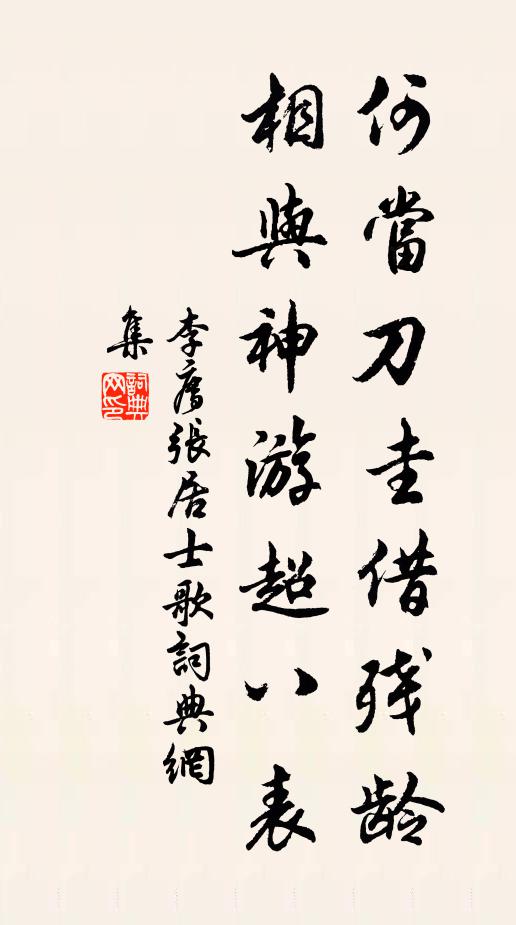 何當刀圭借残龄
相與神游超八表
李廌張居士歌詞典網
集
詞典
网印